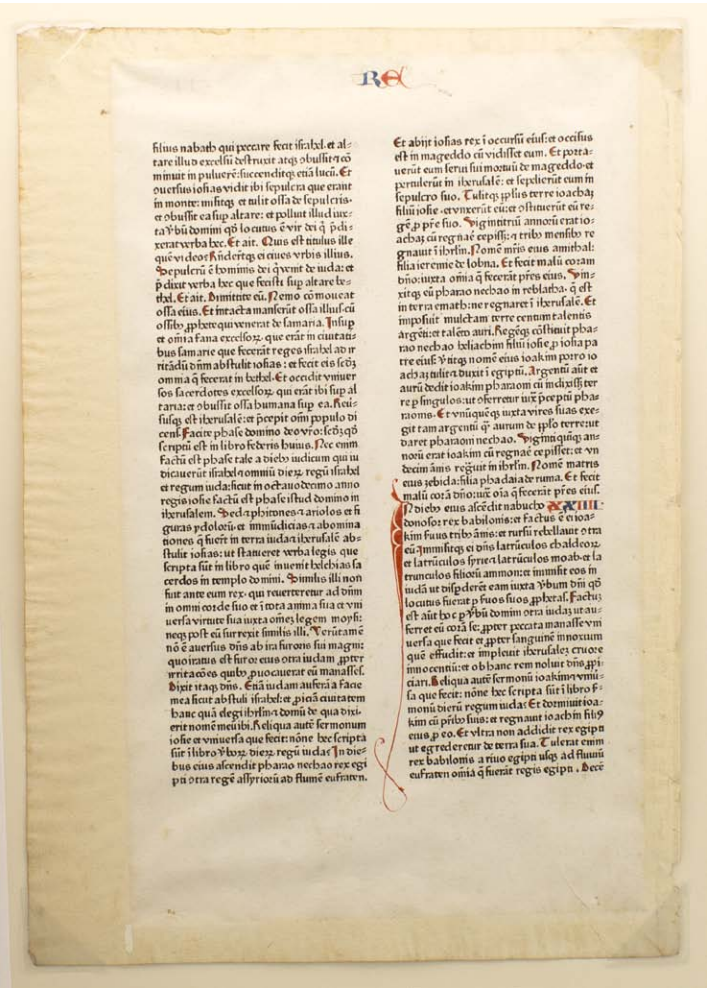 RE
filius nabath qui peccare fecit israhel. et al-
tare illud excelsũ destruxit atqȝ cõbussit: ⁊ cõ
minuit in puluerẽ: succenditqȝ etiã lucũ. Et
cõuersus iosias vidit ibi sepulcra que erant
in monte: misitqȝ et tulit ossa de sepulcris.
et cõbussit ea sup altare: et polluit illud iux-
ta v̾bũ domini qð locutus ẽ vir dei q̃ p̃di-
xerat verba hec. Et ait. Quis est titulus ille
quẽ video: Rñderũtqȝ ei ciues vrbis illius.
Sepulcrũ ẽ hominis dei q̃ venit de iuda: et
p̃dixit verba hec que fecisti sup altare be-
thel. Et ait. Dimittite eũ. Nemo cõmoueat
ossa eius. Et intacta manserũt ossa illius cũ
ossibȝ ꝓphete qui venerat de samaria. Insup
et omĩa fana excelsoꝝ. que erãt in ciuitati-
bus samarie que fecerãt reges israhel ad ir
ritãdũ dñm abstulit iosias: et fecit eis scðȝ
omnia q̃ fecerat in bethel. Et occidit vniuer
sos sacerdotes excelsoꝝ qui erãt ibi sup al
taria: et cõbussit ossa humana sup ea. Reu̾-
susqȝ est iherusalẽ: et p̃cepit om̃i populo di
cens. Facite phase domino deo vr̃o: scðȝ qð
scriptũ est in libro federis huius. Nec enim
factũ est phase tale a diebȝ iudicum qui iu
dicauerũt israhel ⁊ omniũ dieꝝ regũ israhel
et regum iuda: sicut in octauodecimo anno
regis iosie factũ est phase istud domino in
iherusalem. Sed ⁊ phitones ⁊ ariolos et fi
guras ydoloꝝ et immũdicias ⁊ abomina
tiones q̃ fuerãt in terra iuda ⁊ iherusalẽ ab-
stulit iosias: ut staueret verba legis que
scripta sũt in libro quẽ inuenit helchias sa
cerdos in templo domini. Similis illi non
fuit ante eum rex. qui reuerteretur ad dñm
in omni corde suo et ĩ tota anima sua et vni
uersa virtute sua iuxta om̃eȝ legem moysi:
neqȝ post eũ surrexit similis illi. Verũtamẽ
nõ ẽ auersus dñs ab ira furoris sui magni:
quo iratus est furor eius cõtra iudam ꝓpter
irritacões quibȝ ꝓuocauerat eũ manasses.
Dixit itaqȝ dñs. Etiã iudam auferã a facie
mea sicut abstuli israhel: et ꝓiciã ciuitatem
hanc quã elegi ihrl̃m ⁊ domũ de qua dixi-
erit nomẽ meũ ibi. Reliqua aut̃ sermonum
iosie et vniuersa que fecit: nõne hec scripta
sũt ĩ libro v̾boꝝ dieꝝ regũ iuda: In die-
bus eius ascendit pharao nechao rex egi
pti cõtra regẽ assyrioꝝ ad flumẽ eufraten.
Et abijt iosias rex ĩ occursũ eius: et occisus
est in mageddo cũ vidisset eum. Et porta-
uerũt eum serui sui mortuũ de mageddo. et
pertulerũt in iherusalẽ: et sepelierũt eum in
sepulcro suo. Tulitqȝ ppl̃us terre ioachaȝ
filiũ iosie. et vnxerũt eũ: et cõstituerũt eũ re-
gẽ ꝓ pr̃e suo. Viginti triũ annorũ erat io-
achaȝ cũ regnare cepisset: ⁊ tribȝ mensibȝ re
gnauit ĩ ihrl̃m. Nomẽ mr̃is eius amithal:
filia ieremie de lobna. Et fecit malũ coram
dño: iuxta omĩa q̃ fecerãt pr̃es eius. Vin-
xitqȝ eũ pharao nechao in reblatha. q̃ est
in terra emath: ne regnaret ĩ iherusalẽ. Et
imposuit mulctam terre centum talentis
argẽti: et talẽto auri. Regẽqȝ cõstituit pha-
rao nechao heliachim filiũ iosie ꝓ iosia pa
tre eius: v̾titqȝ nomẽ eius ioakim porro io
achaȝ tulit ⁊ duxit ĩ egiptũ. Argentũ aũt et
aurũ dedit ioakim pharaoni cũ indixisset ter
re p singulos: ut offerretur iux̃ p̃ceptũ pha
raonis. Et vnũquẽqȝ iuxta vires suas exe-
git tam argentũ q̃ aurum de ppl̃o terre: ut
daret pharaoni nechao. Viginti quĩqȝ an-
norũ erat ioakim cũ regnare cepisset: et vn
decim ãnis regñuit in ihrl̃m. Nomẽ matris
eius zebida: filia phadaia de ruma. Et fecit
malũ corã dño: iux̃ om̃ia q̃ fecerãt pr̃es eius.
IN diebȝ eius ascẽdit nabucho XXIIII
donosor rex babilonis: et factus ẽ ei ioa-
kim seruus tribȝ ãnis: et rursũ rebellauit cõtra
eũ. Immisitqȝ ei dñs latrũculos chaldeoꝝ
et latrũculos syrie ⁊ latrũculos moab. et la
trunculos filiorũ ammon: et immisit eos in
iudã ut disꝑderẽt eam iuxta v̾bum dñi qð
locutus fuerat p suos suos ꝓphetas. Factũ
est aũt hoc p v̾bũ domini cõtra iudaȝ ut au-
ferret eũ corã se: ꝓpter peccata manasse vni
uersa que fecit et ꝓpter sanguinẽ innoxium
quẽ effudit: et impleuit iherusalẽȝ cruore
innocentiũ: et ob hanc rem noluit dñs ꝓpi-
ciari. Reliqua autẽ sermonũ ioakim ⁊ vniu̾-
sa que fecit: nõne hec scripta sũt ĩ libro s̾-
monũ dierũ regum iuda: Et dormiuit ioa-
kim cũ pr̃ibȝ suis: et regnauit ioachin filiꝰ
eius ꝓ eo. Et vltra non addidit rex egipti
ut egrederetur de terra sua. Tulerat enim
rex babilonis a riuo egipti usqȝ ad fluuiũ
eufraten om̃ia q̃ fuerãt regis egipti. Decẽ